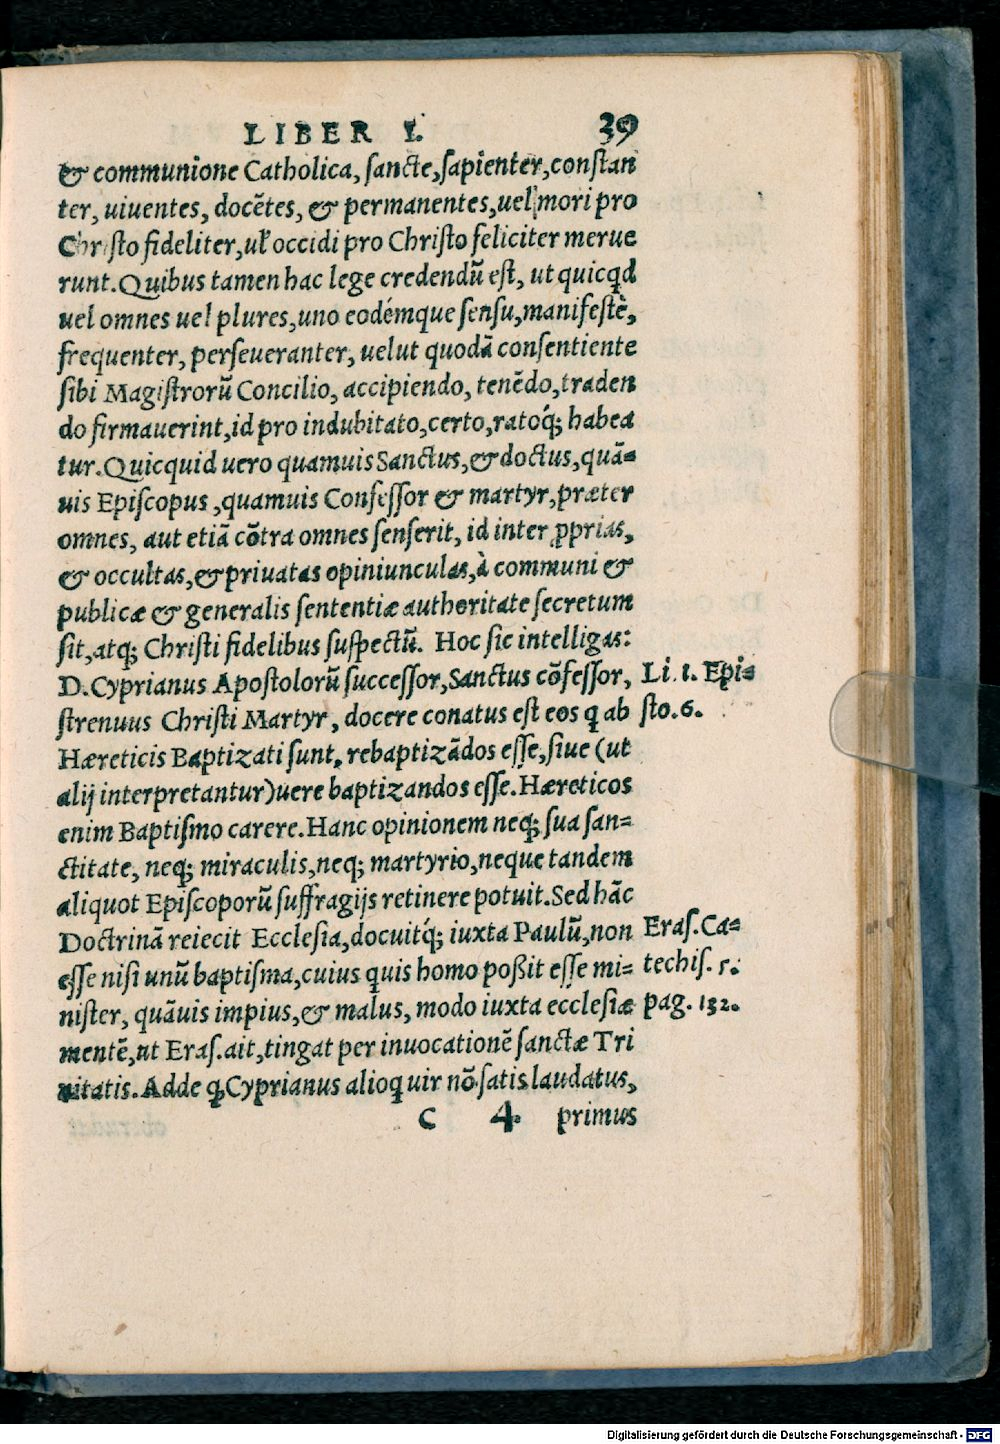 LIBER I. 39
& communione Catholica, sancte, sapienter, constan
ter, uiuentes, docẽtes, & permanentes, uel mori pro
Christo fideliter, uł occidi pro Christo feliciter merue
runt. Quibus tamen hac lege credendũ est, ut quicqd
uel omnes uel plures, uno eodémque sensu, manifestè,
frequenter, perseueranter, uelut quodã consentiente
sibi Magistrorũ Concilio, accipiendo, tenẽdo, traden
do firmauerint, id pro indubitato, certo, ratoq́; habea
tur. Quicquid uero quamuis Sanctus, & doctus, quã=
uis Episcopus, quamuis Confessor & martyr, præter
omnes, aut etiã cõtra omnes senserit, id inter ꝓprias,
& occultas, & priuatas opiniunculas, à communi &
publicæ & generalis sententiæ authoritate secretum
sit, atq; Christi fidelibus suspectũ. Hoc sic intelligas:
D. Cyprianus Apostolorũ successor, Sanctus cõfessor,
Li. 1. Epi=
strenuus Christi Martyr, docere conatus est eos q ab
sto. 6.
Hæreticis Baptizati sunt, rebaptizãdos esse, siue (ut
alij interpretantur) uere baptizandos esse. Hæreticos
enim Baptismo carere. Hanc opinionem neq; sua san=
ctitate, neq; miraculis, neq; martyrio, neque tandem
aliquot Episcoporũ suffragijs retinere potuit. Sed hãc
Doctrinã reiecit Ecclesia, docuitq́; iuxta Paulũ, non
Eras. Ca=
esse nisi unũ baptisma, cuius quis homo poßit esse mi=
techis. 5.
nister, quãuis impius, & malus, modo iuxta ecclesiæ
pag. 132.
mentẽ, ut Eras. ait, tingat per inuocationẽ sanctæ Tri
nitatis. Adde ꝙ Cyprianus alioq uir nõ satis laudatus,
C 4. primus
Digitalisierung gefördert durch die Deutsche Forschungsgemeinschaft - DFG